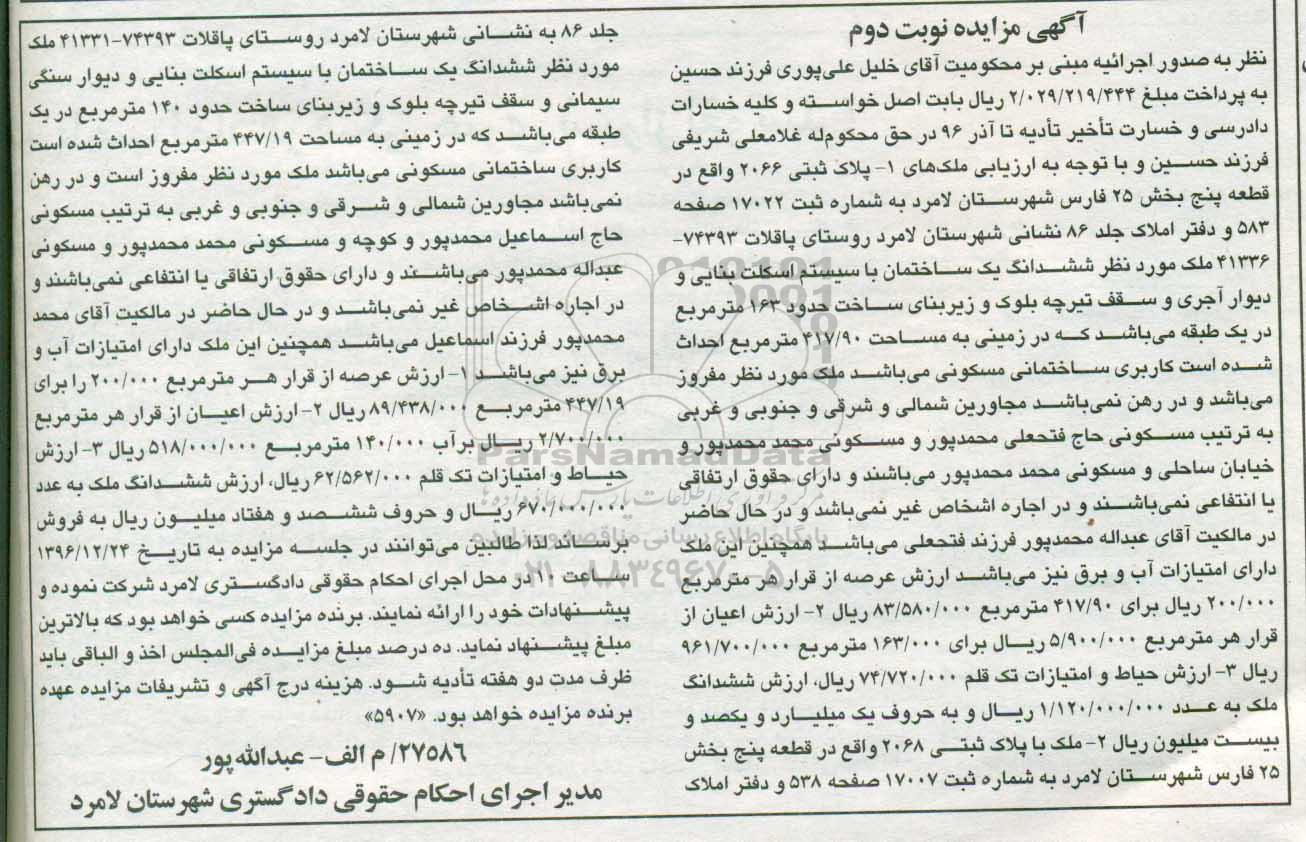 آگهی مزایده نوبت دوم
نظر به صدور اجرائیه مبنی بر محکومیت آقای خلیل علی‌پوری فرزند حسین
به پرداخت مبلغ ۲/۰۲۹/۲۱۹/۴۴۴ ریال بابت اصل خواسته و کلیه خسارات
دادرسی و خسارت تأخیر تأدیه تا آذر ۹۶ در حق محکوم‌له غلامعلی شریفی
فرزند حسین و با توجه به ارزیابی ملک‌های ۱- پلاک ثبتی ۲۰۶۶ واقع در
قطعه پنج بخش ۲۵ فارس شهرستان لامرد به شماره ثبت ۱۷۰۲۲ صفحه
۵۸۳ و دفتر املاک جلد ۸۶ نشانی شهرستان لامرد روستای پاقلات ۷۴۳۹۳-
۴۱۳۳۶ ملک مورد نظر ششدانگ یک ساختمان با سیستم اسکلت بنایی و
دیوار آجری و سقف تیرچه بلوک و زیربنای ساخت حدود ۱۶۳ مترمربع
در یک طبقه می‌باشد که در زمینی به مساحت ۴۱۷/۹۰ مترمربع احداث
شده است کاربری ساختمانی مسکونی می‌باشد ملک مورد نظر مفروز
می‌باشد و در رهن نمی‌باشد مجاورین شمالی و شرقی و جنوبی و غربی
به ترتیب مسکونی حاج فتحعلی محمدپور و مسکونی محمد محمدپور و
خیابان ساحلی و مسکونی محمد محمدپور می‌باشند و دارای حقوق ارتفاقی
یا انتفاعی نمی‌باشند و در اجاره اشخاص غیر نمی‌باشد و در حال حاضر
در مالکیت آقای عبداله محمدپور فرزند فتحعلی می‌باشد همچنین این ملک
دارای امتیازات آب و برق نیز می‌باشد ارزش عرصه از قرار هر مترمربع
۲۰۰/۰۰۰ ریال برای ۴۱۷/۹۰ مترمربع ۸۳/۵۸۰/۰۰۰ ریال ۲- ارزش اعیان از
قرار هر مترمربع ۵/۹۰۰/۰۰۰ ریال برای ۱۶۳/۰۰۰ مترمربع ۹۶۱/۷۰۰/۰۰۰
ریال ۳- ارزش حیاط و امتیازات تک قلم ۷۴/۷۲۰/۰۰۰ ریال، ارزش ششدانگ
ملک به عدد ۱/۱۲۰/۰۰۰/۰۰۰ ریال و به حروف یک میلیارد و یکصد و
بیست میلیون ریال ۲- ملک با پلاک ثبتی ۲۰۶۸ واقع در قطعه پنج بخش
۲۵ فارس شهرستان لامرد به شماره ثبت ۱۷۰۰۷ صفحه ۵۳۸ و دفتر املاک
جلد ۸۶ به نشانی شهرستان لامرد روستای پاقلات ۷۴۳۹۳-۴۱۳۳۱ ملک
مورد نظر ششدانگ یک ساختمان با سیستم اسکلت بنایی و دیوار سنگی
سیمانی و سقف تیرچه بلوک و زیربنای ساخت حدود ۱۴۰ مترمربع در یک
طبقه می‌باشد که در زمینی به مساحت ۴۴۷/۱۹ مترمربع احداث شده است
کاربری ساختمانی مسکونی می‌باشد ملک مورد نظر مفروز است و در رهن
نمی‌باشد مجاورین شمالی و شرقی و جنوبی و غربی به ترتیب مسکونی
حاج اسماعیل محمدپور و کوچه و مسکونی محمد محمدپور و مسکونی
عبداله محمدپور می‌باشند و دارای حقوق ارتفاقی یا انتفاعی نمی‌باشند و
در اجاره اشخاص غیر نمی‌باشد و در حال حاضر در مالکیت آقای محمد
محمدپور فرزند اسماعیل می‌باشد همچنین این ملک دارای امتیازات آب و
برق نیز می‌باشد ۱- ارزش عرصه از قرار هر مترمربع ۲۰۰/۰۰۰ را برای
۴۴۷/۱۹ مترمربع ۸۹/۴۳۸/۰۰۰ ریال ۲- ارزش اعیان از قرار هر مترمربع
۲/۷۰۰/۰۰۰ ریال برآب ۱۴۰/۰۰۰ مترمربع ۵۱۸/۰۰۰/۰۰۰ ریال ۳- ارزش
حیاط و امتیازات تک قلم ۶۲/۵۶۲/۰۰۰ ریال، ارزش ششدانگ ملک به عدد
۶۷۰/۰۰۰/۰۰۰ ریال و حروف ششصد و هفتاد میلیون ریال به فروش
برساند لذا طالبین می‌توانند در جلسه مزایده به تاریخ ۱۳۹۶/۱۲/۲۴
ساعت ۱۰ در محل اجرای احکام حقوقی دادگستری لامرد شرکت نموده و
پیشنهادات خود را ارائه نمایند. برنده مزایده کسی خواهد بود که بالاترین
مبلغ پیشنهاد نماید. ده درصد مبلغ مزایده فی‌المجلس اخذ و الباقی باید
ظرف مدت دو هفته تأدیه شود. هزینه درج آگهی و تشریفات مزایده عهده
برنده مزایده خواهد بود. «۵۹۰۷»
۲۷۵۸۶/ م الف- عبدالله‌پور
مدیر اجرای احکام حقوقی دادگستری شهرستان لامرد
ParsNamadData
پایگاه اطلاع رسانی مناقصه و مزایده
۰۲۱-۸۸۳۴۹۶۷۰-۵